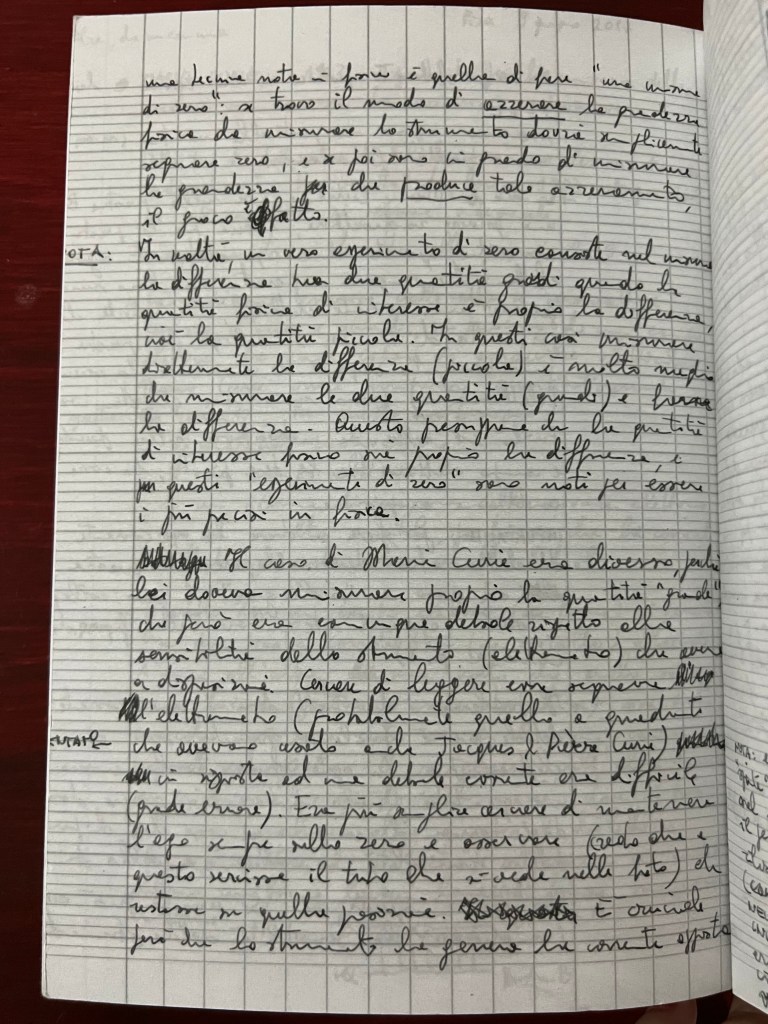 una tecnica nota in fisica è quella di fare "una misura
di zero": se trovo il modo di azzerare la grandezza
fisica da misurare lo strumento dovrà semplicemente
segnare zero, e se poi sono in grado di misurare
la grandezza che produce tale azzeramento,
il gioco è fatto.
NOTA: In realtà, un vero esperimento di zero consiste nel misurare
la differenza tra due quantità grandi quando la
quantità fisica di interesse è proprio la differenza,
cioè la quantità piccola. In questi casi misurare
direttamente la differenza (piccola) è molto meglio
che misurare le due quantità (grandi) e farne
la differenza. Questo presuppone che la quantità
di interesse fisico sia proprio la differenza, e
questi "esperimenti di zero" sono noti per essere
i più precisi in fisica.
Il caso di Marie Curie era diverso, perché
lei doveva misurare proprio la quantità "grande",
che però era comunque debole rispetto alla
sensibilità dello strumento (elettrometro) che aveva
a disposizione. Cercare di leggere cosa segnava
l'elettrometro (probabilmente quello a quadrante
che avevano usato anche Jacques e Pierre Curie)
in risposta ad una debole corrente era difficile
(grande errore). Era più semplice cercare di mantenere
l'ago sempre sullo zero e osservare (credo che a
questo servisse il tubo che si vede nella foto) che
restasse in quella posizione. È cruciale
però che lo strumento che genera la corrente opposta